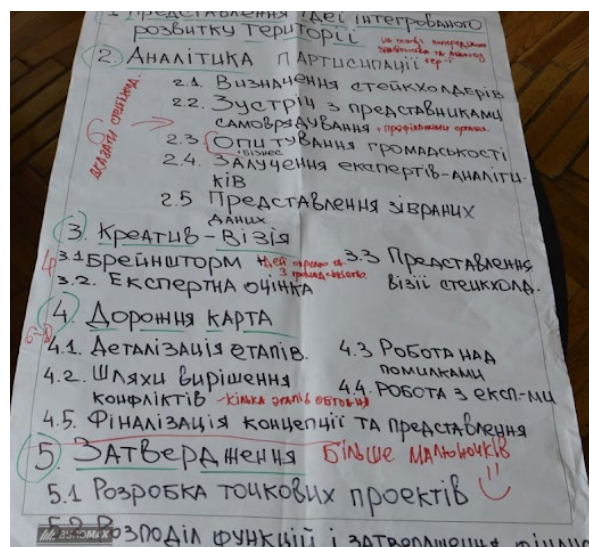 1. Представлення ідеї інтегрованого
розвитку території
2. Аналітика партисипації
2.1. Визначення стейкхолдерів
2.2. Зустріч з представниками
самоврядування + профільними
2.3 Опитування громадськості
+ бізнес
2.4. Залучення експертів-аналіти-
ків
2.5 Представлення зібраних
даних
3. Креатив-Візія
3.1 Брейншторм +
3.2. Експертна оцінка
3.3 Представлення
візії стейкхолд.
4. Дорожня карта
4.1. Деталізація етапів.
4.2. Шляхи вирішення
конфліктів - кілька етапів
4.3 Робота над
помилками
4.4. Робота з експ-ми
4.5. Фіналізація концепції та представлення
5. Затвердження Більше малюночків
5.1 Розробка точкових проектів
5.2 Розподіл функцій і затвердження